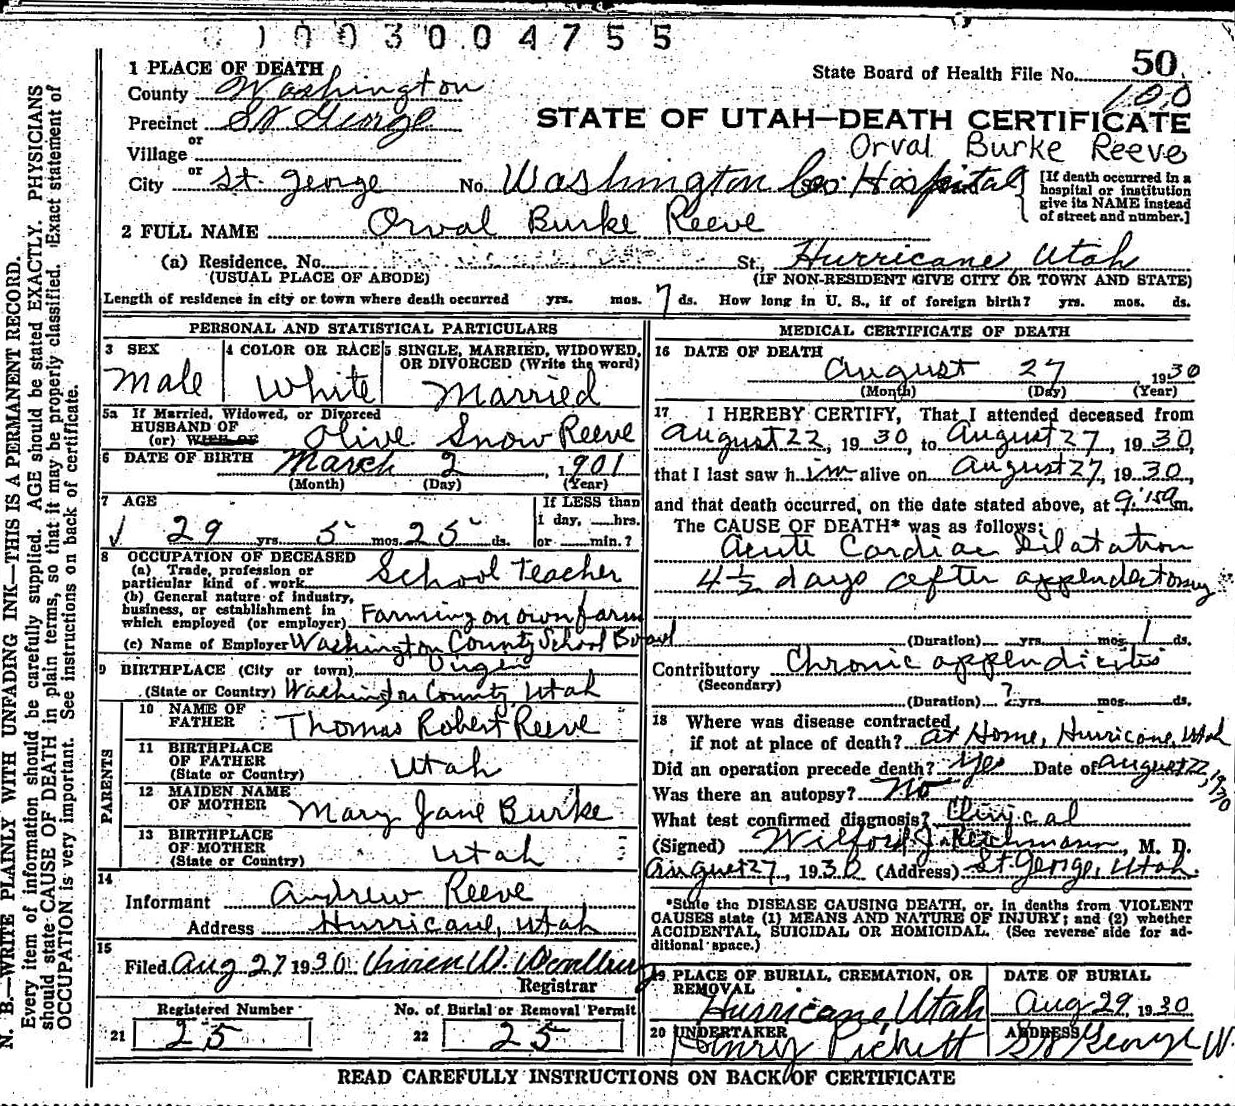 01003004755
50
State Board of Health File No.
100
1 PLACE OF DEATH
County Washington
Precinct St George
or
Village
or
City St. George No. Washington Co. Hospital
STATE OF UTAH—DEATH CERTIFICATE
Orval Burke Reeve
[If death occurred in a
hospital or institution
give its NAME instead
of street and number.]
2 FULL NAME Orval Burke Reeve
(a) Residence, No. St. Hurricane Utah
(USUAL PLACE OF ABODE) (IF NON-RESIDENT GIVE CITY OR TOWN AND STATE)
Length of residence in city or town where death occurred yrs. mos. 7 ds. How long in U. S., if of foreign birth? yrs. mos. ds.
PERSONAL AND STATISTICAL PARTICULARS
3 SEX
Male
4 COLOR OR RACE
White
5 SINGLE, MARRIED, WIDOWED,
OR DIVORCED (Write the word)
Married
5a If Married, Widowed, or Divorced
HUSBAND OF
(or) WIFE OF Olive Snow Reeve
6 DATE OF BIRTH March 2, 1901
(Month) (Day) (Year)
7 AGE
29 yrs. 5 mos. 25 ds.
If LESS than
1 day, hrs.
or min.?
8 OCCUPATION OF DECEASED
(a) Trade, profession or
particular kind of work School Teacher
(b) General nature of industry,
business, or establishment in
which employed (or employer) Farming on own farm
(c) Name of Employer Washington County School Board
9 BIRTHPLACE (City or town) Virgin
(State or Country) Washington County, Utah
PARENTS
10 NAME OF
FATHER Thomas Robert Reeve
11 BIRTHPLACE
OF FATHER
(State or Country) Utah
12 MAIDEN NAME
OF MOTHER Mary Jane Burke
13 BIRTHPLACE
OF MOTHER
(State or Country) Utah
14
Informant Andrew Reeve
Address Hurricane, Utah
15
Filed Aug 27 1930 Vivien W.
Registrar
Registered Number
21 25
No. of Burial or Removal Permit
22 25
MEDICAL CERTIFICATE OF DEATH
16 DATE OF DEATH
August 27 1930
(Month) (Day) (Year)
17 I HEREBY CERTIFY, That I attended deceased from
August 22, 1930, to August 27, 1930,
that I last saw him alive on August 27, 1930,
and that death occurred, on the date stated above, at 9:15 a m.
The CAUSE OF DEATH* was as follows:
Acute Cardiac Dilatation
4½ days after appendectomy
(Duration) yrs. mos. 1 ds.
Contributory Chronic appendicitis
(Secondary)
(Duration) ? yrs. mos. ds.
18 Where was disease contracted
if not at place of death? At Home, Hurricane, Utah
Did an operation precede death? Yes Date of August 22, 1930
Was there an autopsy? No
What test confirmed diagnosis? Clinical
(Signed) Wilford J. Reichmann, M. D.
August 27, 1930 (Address) St. George, Utah.
*State the DISEASE CAUSING DEATH, or, in deaths from VIOLENT
CAUSES state (1) MEANS AND NATURE OF INJURY; and (2) whether
ACCIDENTAL, SUICIDAL OR HOMICIDAL. (See reverse side for ad-
ditional space.)
19 PLACE OF BURIAL, CREMATION, OR
REMOVAL
Hurricane, Utah
DATE OF BURIAL
Aug 29, 1930
20 UNDERTAKER
Henry Pickett
ADDRESS
St George
READ CAREFULLY INSTRUCTIONS ON BACK OF CERTIFICATE
N. B.—WRITE PLAINLY WITH UNFADING INK—THIS IS A PERMANENT RECORD.
Every item of information should be carefully supplied. AGE should be stated EXACTLY. PHYSICIANS
should state CAUSE OF DEATH in plain terms, so that it may be properly classified. Exact statement of
OCCUPATION is very important. See instructions on back of certificate.